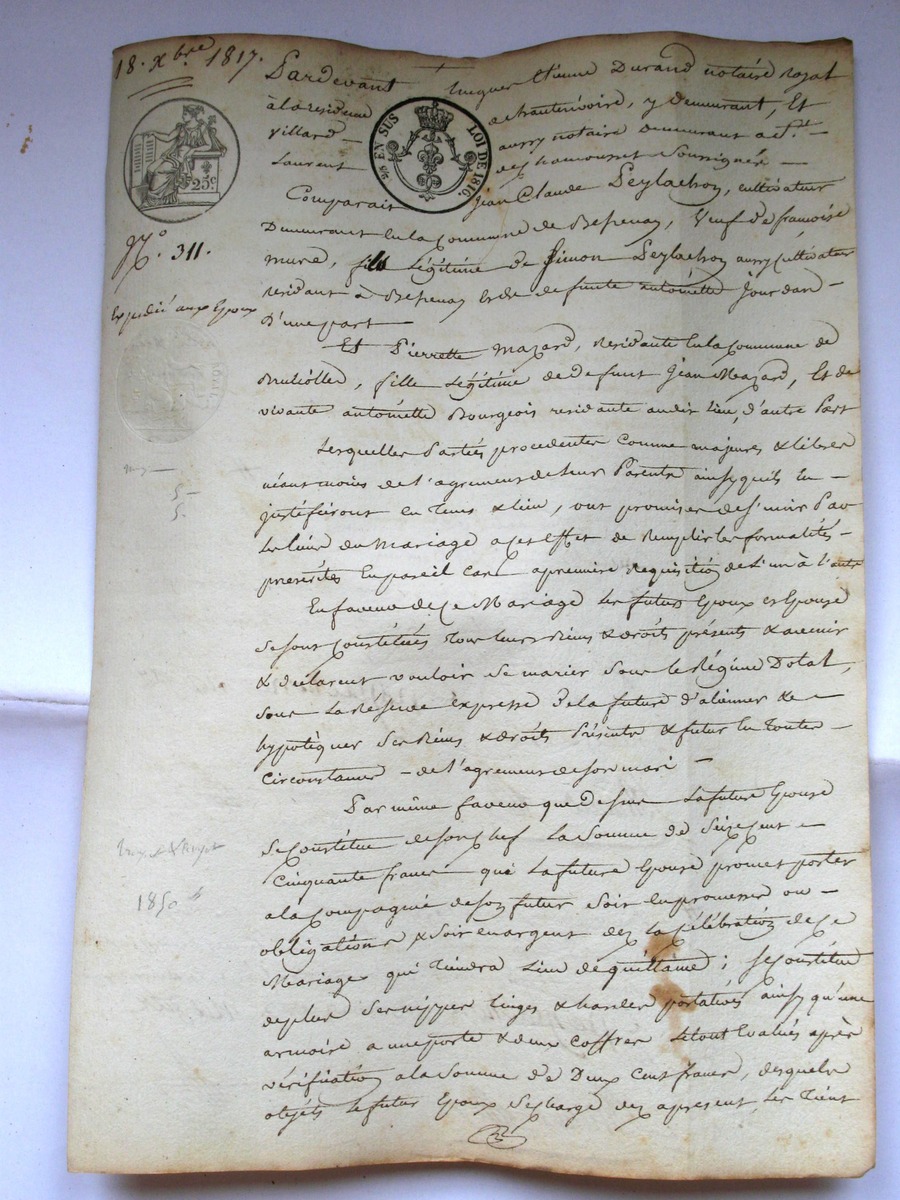 18. Xbre 1817.
Pardevant Etienne Durand notaire royal
à la residence a hauterivoire, y demeurant, Et
Villard aussy notaire demeurant a St.
Laurent de chamousset soussignés
⅕ EN SUS LOI DE 1816.
25c
Comparait Jean Claude Peylachon, cultivateur
Demeurant en la Commune de Bessenay, Veuf de francoise
mure, fils légitime de Simon Peylachon aussy Cultivateur
residant à Bessenay et de defunte antoinette Jourdan
D'une part
No. 311.
Expedié aux Epoux
Et Pierrette Mazard, Residante en la Commune de
Brulliolles, fille légitime de defunt Jean Mazard, et de
vivante antoinette Bourgeois residante audit lieu, d'autre Part
Lesquelles Parties procedentes comme majeures & libres
néantmoins de l'agrement de leurs Parents ainsy qu'ils en
justifieront en tems & lieu, ont promises de s'unir Par
Les liens du Mariage a cet effet de Remplir les formalités
prescrites En pareil cas a premiere requisition de l'un à l'autre
En faveur de Ce Mariage les futurs Epoux et Epouse
se sont constitués tous leurs Biens & droits présents & avenir
& declarent vouloir se marier sous le Régime Dotal,
sous la réserve expresse de la future d'aliener &
hypotéquer ses Biens & droits Présents & futurs en toutes
circonstances de l'agrement de son mari
Par même faveur que dessus La future Epouse
se Constitue de son chef la Somme de Seize Cent
Cinquante francs que la future Epouse promet porter
a la Compagnie de son futur soit en promesses ou
obligations & soit en argent dez la célébration de Ce
Mariage qui tiendra lieu de quittance ; se Constitue
de plus ses nippes linges & hardes portatives ainsy qu'une
armoire a une porte & deux coffres le tout Evalués après
vérification a la Somme de Deux Cent francs, desquels
objets le futur Epoux se charge dez apresent, les tient
5
5.
1850